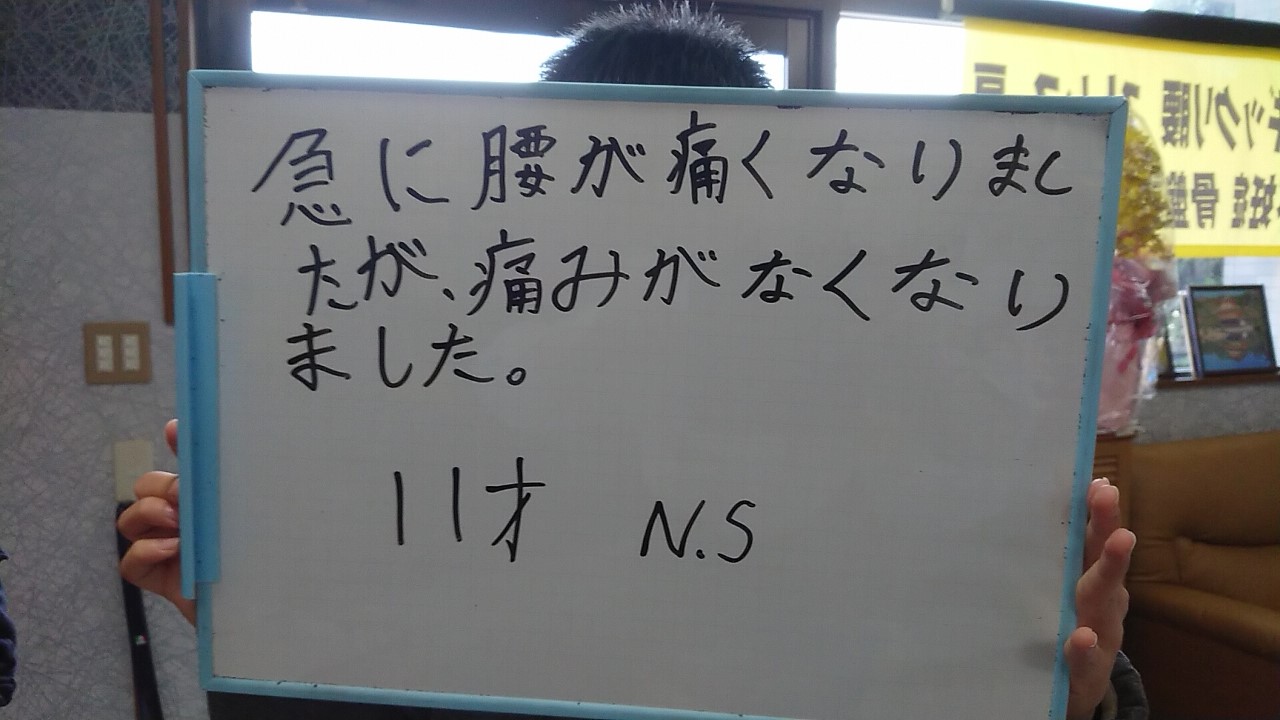 急に腰が痛くなりまし
たが、痛みがなくなり
ました。
11才 N.S
ギックリ腰
骨盤